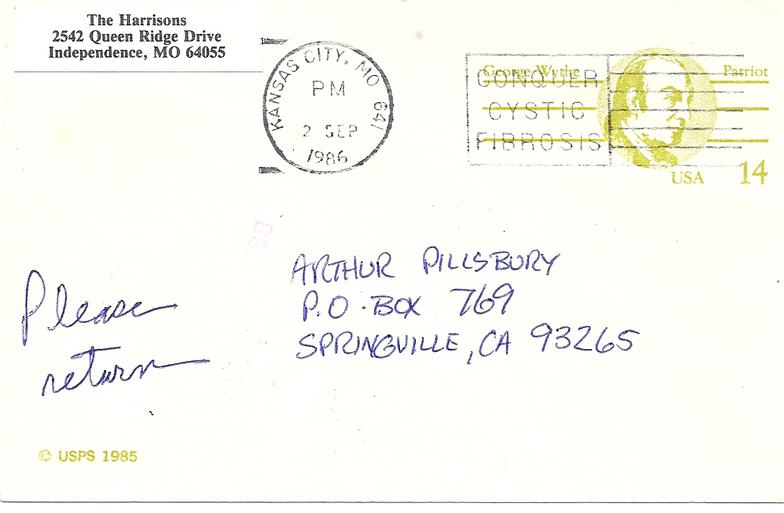 The Harrisons
2542 Queen Ridge Drive
Independence, MO 64055
KANSAS CITY, MO 641
PM
2 SEP
1986
George Wythe
Patriot
CONQUER
CYSTIC
FIBROSIS
USA 14
88
ARTHUR PILLSBURY
P.O. BOX 769
SPRINGVILLE, CA 93265
Please
return
© USPS 1985